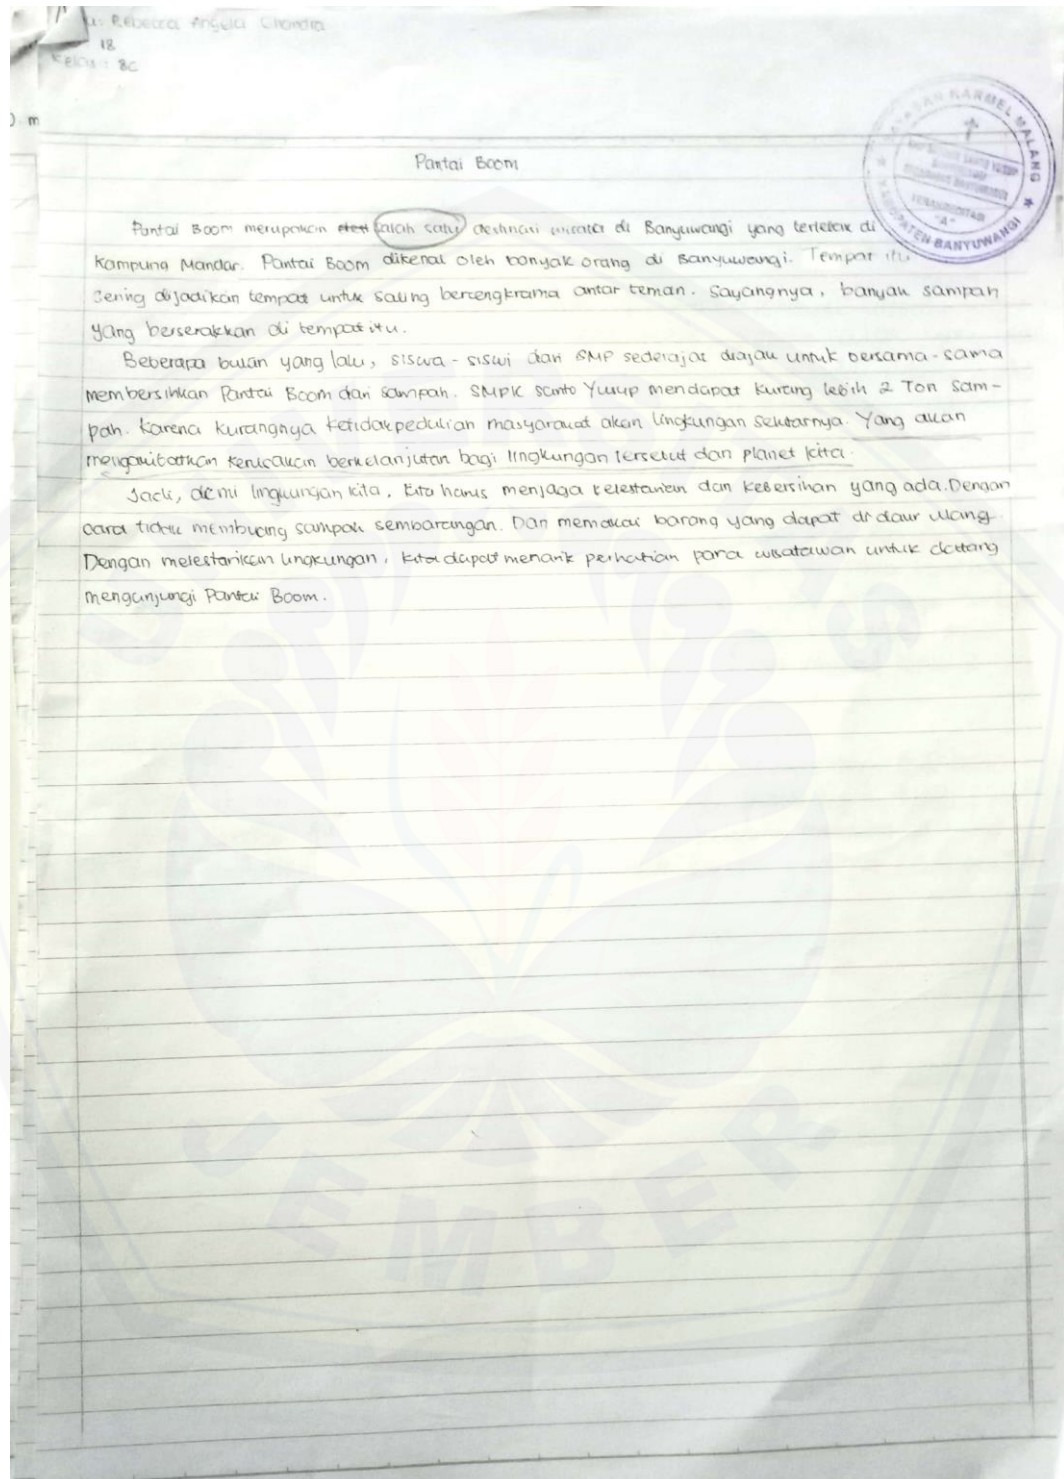 : Rebecca Angela Chandra
18
Kelas : 8C
D. m
YAYASAN KARMEL MALANG
TERAKREDITASI
"A"
KABUPATEN BANYUWANGI
Pantai Boom
Pantai Boom merupakan salah satu destinasi wisata di Banyuwangi yang terletak di
Kampung Mandar. Pantai Boom dikenal oleh banyak orang di Banyuwangi. Tempat itu
sering dijadikan tempat untuk saling bercengkrama antar teman. Sayangnya, banyak sampah
yang berserakkan di tempat itu.
Beberapa bulan yang lalu, siswa - siswi dari SMP sederajat diajau untuk bersama-sama
membersihkan Pantai Boom dari sampah. SMPK Santo Yusup mendapat kurang lebih 2 Ton Sam-
pah. Karena kurangnya ketidakpedulian masyarakat akan lingkungan sekitarnya. Yang akan
mengakibatkan kerusakan berkelanjutan bagi lingkungan tersebut dan planet kita.
Jadi, demi lingkungan kita, kita harus menjaga kelestarian dan kebersihan yang ada. Dengan
cara tidak membuang sampah sembarangan. Dan memakai barang yang dapat di daur ulang.
Dengan melestarikan lingkungan, kita dapat menarik perhatian para wisatawan untuk datang
mengunjungi Pantai Boom.
JEMBER